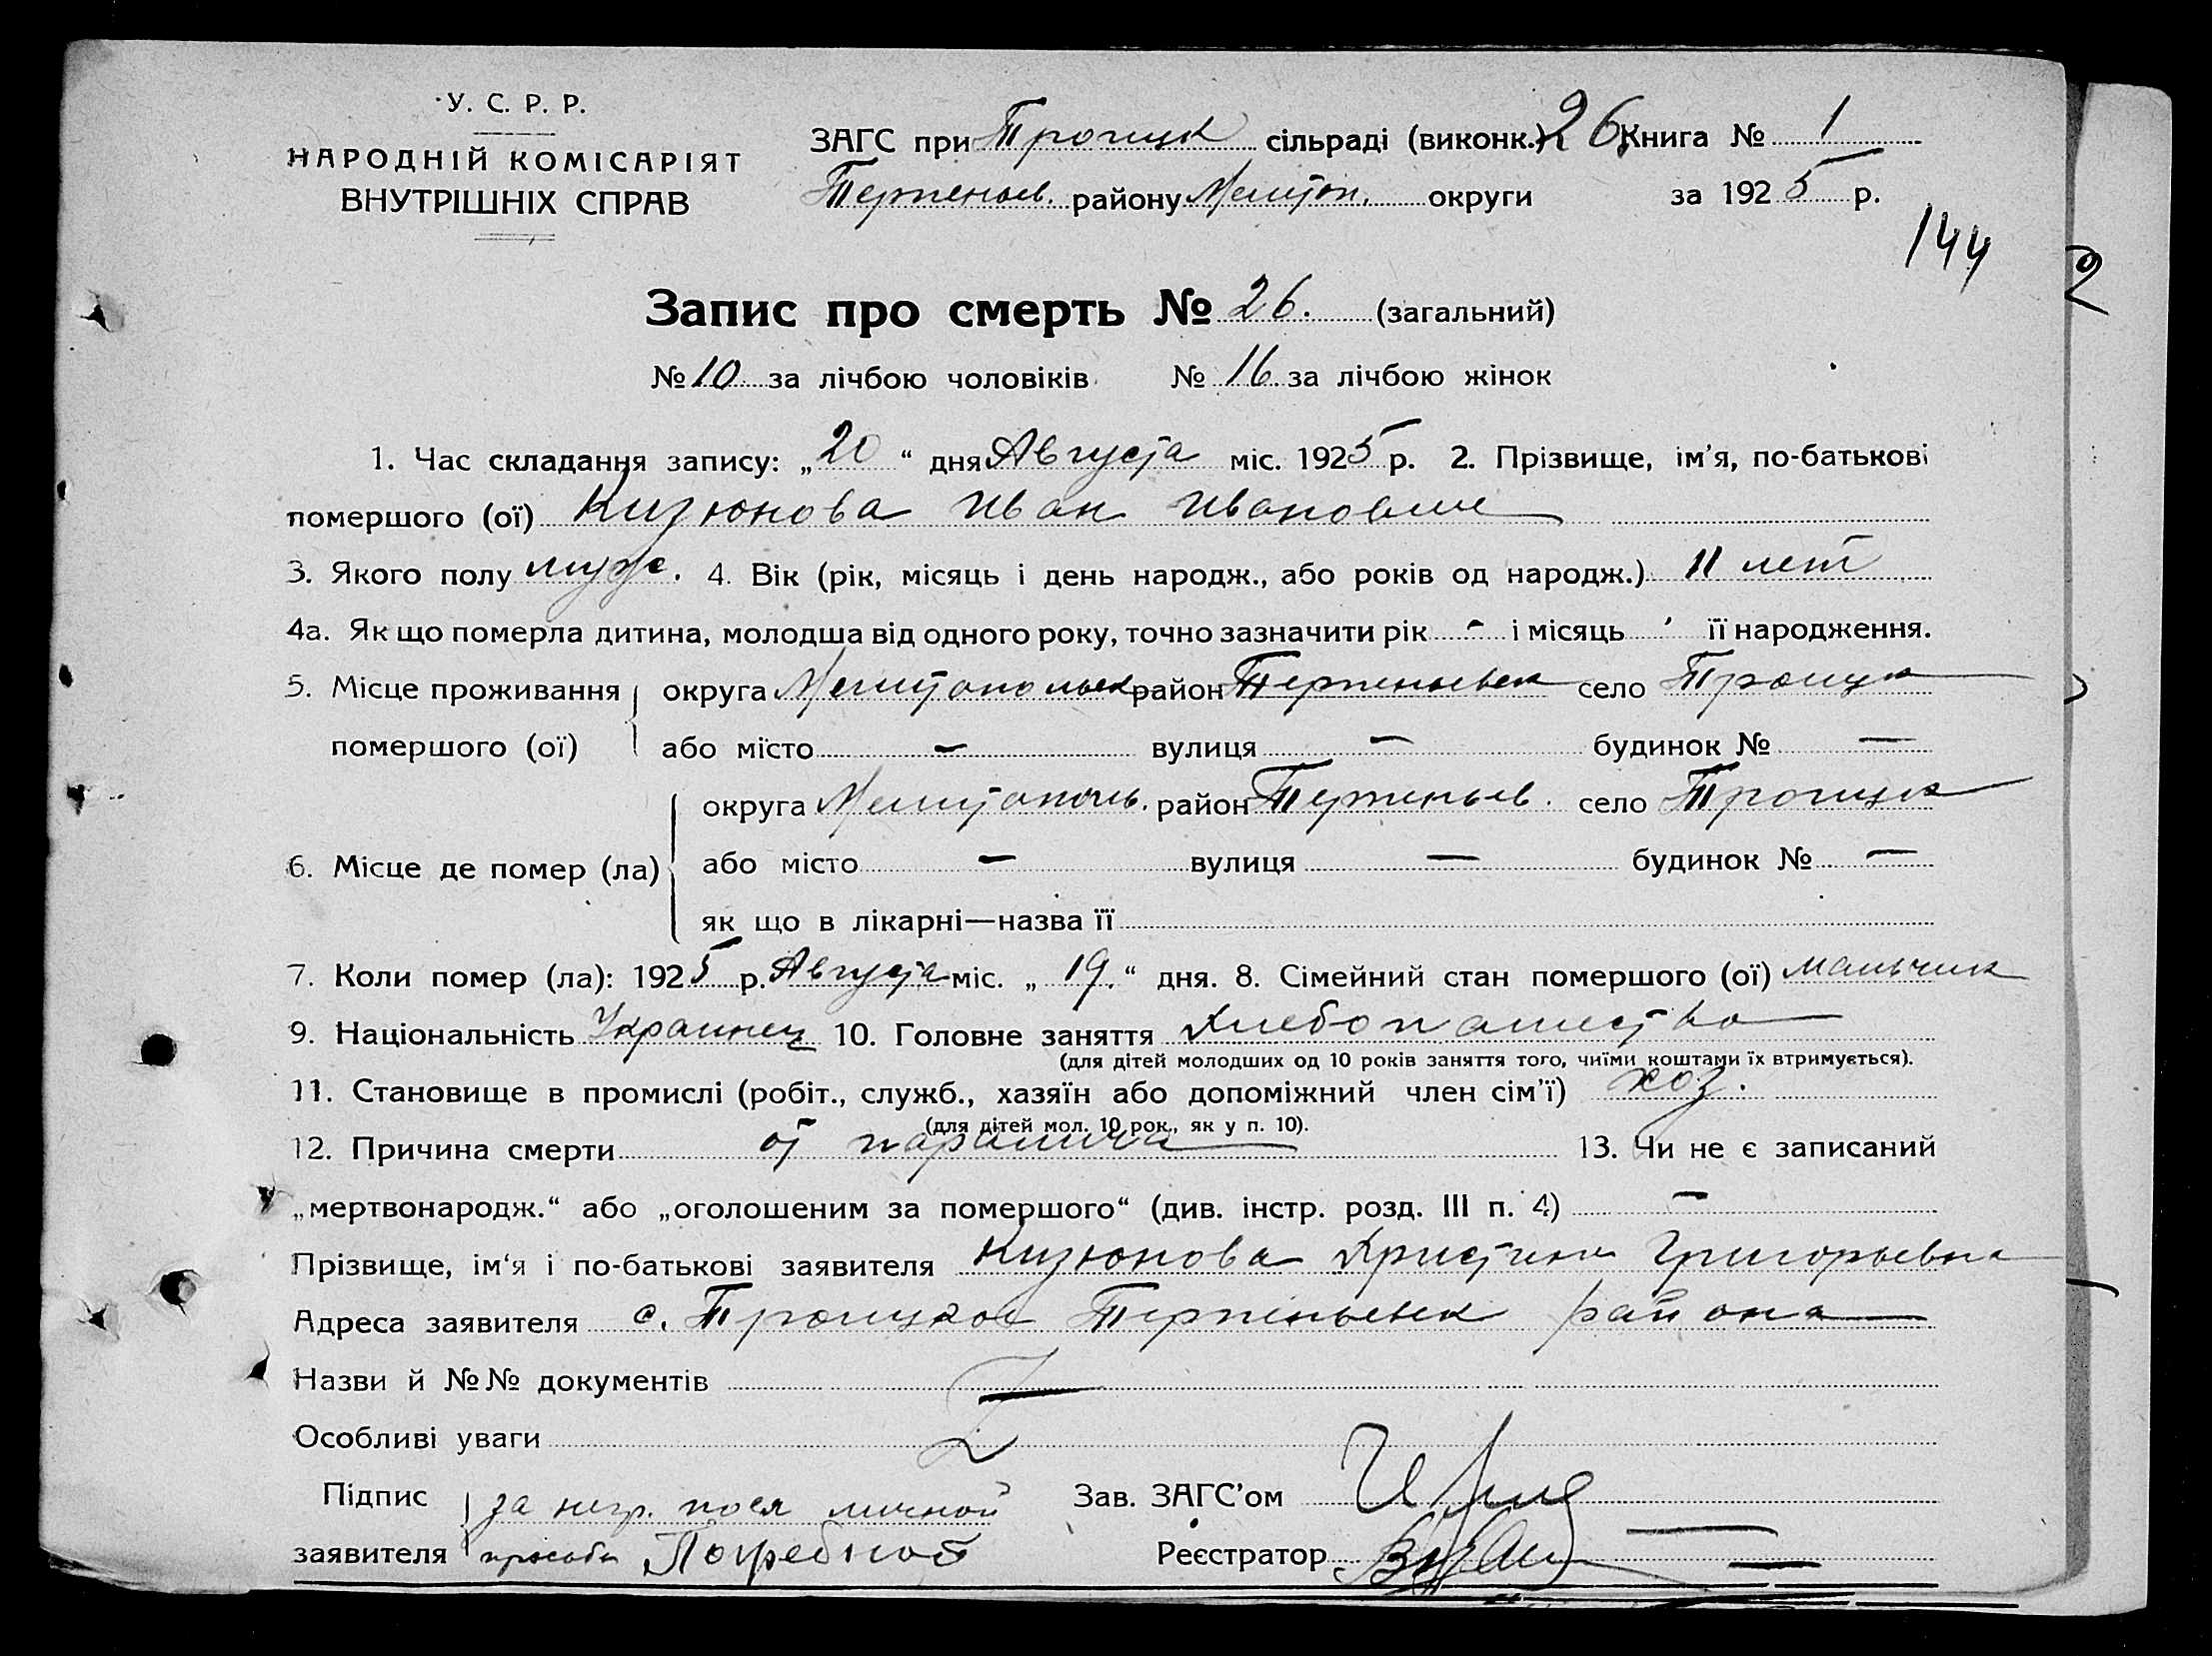 У. С. Р. Р.
НАРОДНІЙ КОМІСАРІЯТ
ВНУТРІШНІХ СПРАВ
ЗАГС при Троицк сільраді (виконк.) 26 Книга № 1
Терпеньев. району Мелитоп. округи за 1925 р.
144
2
Запис про смерть № 26. (загальний)
№ 10 за лічбою чоловіків № 16 за лічбою жінок
1. Час складання запису: „20“ дня Августа міс. 1925 р. 2. Прізвище, ім'я, по-батькові
помершого (ої) Кизюнова Иван Иванович
3. Якого полу муж. 4. Вік (рік, місяць і день народж., або років од народж.) 11 лет
4а. Як що померла дитина, молодша від одного року, точно зазначити рік - і місяць ' її народження.
5. Місце проживання округа Мелитопольск район Терпеньевск село Троицк
помершого (ої) або місто — вулиця — будинок № —
округа Мелитополь. район Терпеньев. село Троицк
6. Місце де помер (ла) або місто — вулиця — будинок № —
як що в лікарні—назва її
7. Коли помер (ла): 1925 р. Августа міс. „19.“ дня. 8. Сімейний стан помершого (ої) мальчик
9. Національність Украинец 10. Головне заняття Хлебопашество
(для дітей молодших од 10 років заняття того, чиїми коштами їх втримується).
11. Становище в промислі (робіт., служб., хазяїн або допоміжний член сім'ї) хоз.
(для дітей мол. 10 рок., як у п. 10).
12. Причина смерти от паралича 13. Чи не є записаний
„мертвонародж.“ або „оголошеним за помершого“ (див. інстр. розд. III п. 4) —
Прізвище, ім'я і по-батькові заявителя Кизюнова Христина Григорьевна
Адреса заявителя с. Троицкое Терпеньевск района
Назви й №№ документів
Особливі уваги
Підпис за негр. личной Зав. ЗАГС'ом
заявителя просьбы Реєстратор